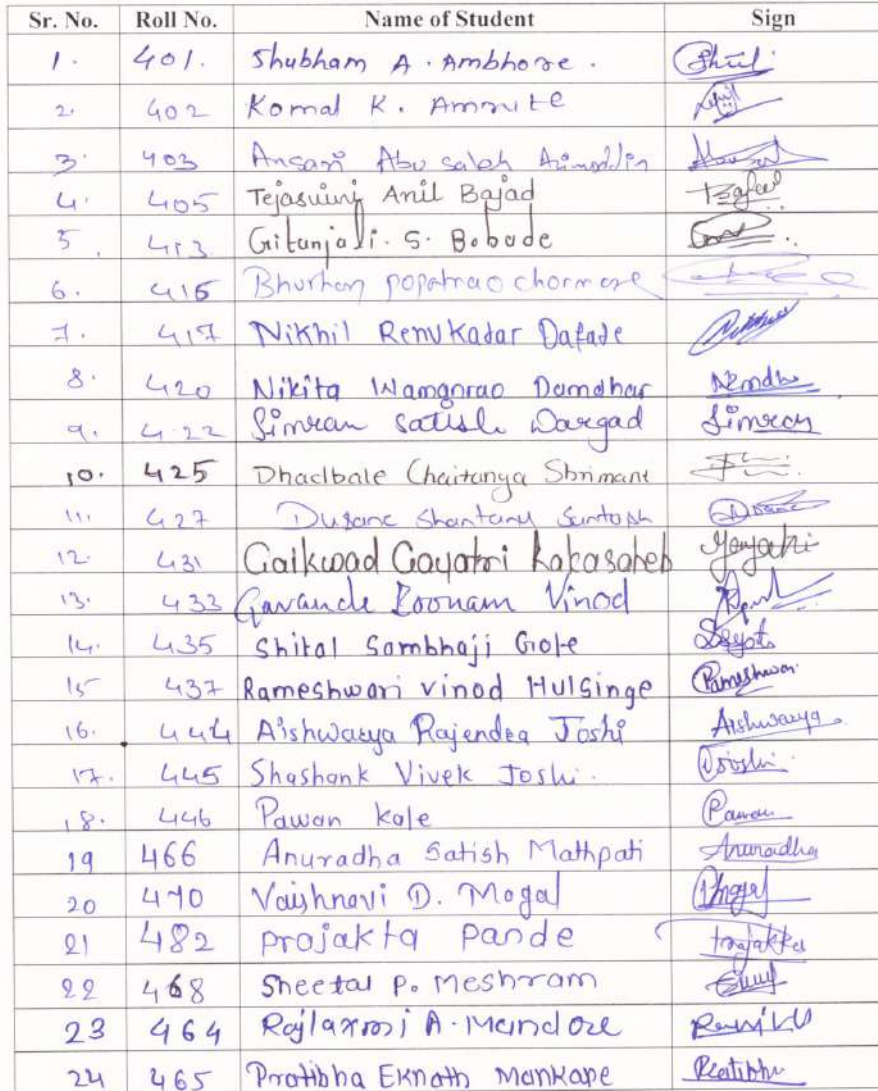 Sr. No. Roll No. Name of Student Sign
1. 401. Shubham A. Ambhore.
2. 402 Komal K. Amrute
3. 403 Ansari Abu saleh Azimoddin
4. 405 Tejaswini Anil Bajad
5. 413 Gitanjali. S. Bobade
6. 415 Bhushan popatrao chormare
7. 417 Nikhil Renukadar Dafade
8. 420 Nikita Wamanrao Damdhar
9. 422 Simran Satish Dargad Simran
10. 425 Dhadbale Chaitanya Shrimant
11. 427 Dusane Shantanu Santosh
12. 431 Gaikwad Gayatri Kakasaheb Gayatri
13. 433 Gavande Poonam Vinod
14. 435 Shital Sambhaji Gore
15 437 Rameshwari vinod Hulsinge Rameshwari
16. 444 Aishwarya Rajendra Joshi Aishwarya
17. 445 Shashank Vivek Joshi.
18. 446 Pawan Kale Pawan
19 466 Anuradha Satish Mathpati Anuradha
20 470 Vaishnavi D. Mogal
21 482 prajakta pande Prajakta
22 468 Sheetal P. Meshram
23 464 Rajlaxmi A. Mandore
24 465 Pratibha Eknath Mankape Pratibha